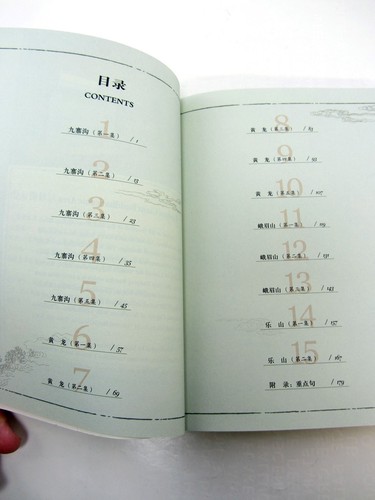 目录
CONTENTS
1
九寨沟（第一集） / 1
2
九寨沟（第二集） / 13
3
九寨沟（第三集） / 23
4
九寨沟（第四集） / 35
5
九寨沟（第五集） / 45
6
黄 龙（第一集） / 57
7
黄 龙（第二集） / 69
8
黄 龙（第三集） /
9
黄 龙（第四集） /
10
黄 龙（第五集） / 107
11
峨眉山（第一集） /
12
峨眉山（第二集） / 131
13
峨眉山（第三集） / 143
14
乐 山（第一集） / 157
15
乐 山（第二集） / 167
附 录：重点句 / 179